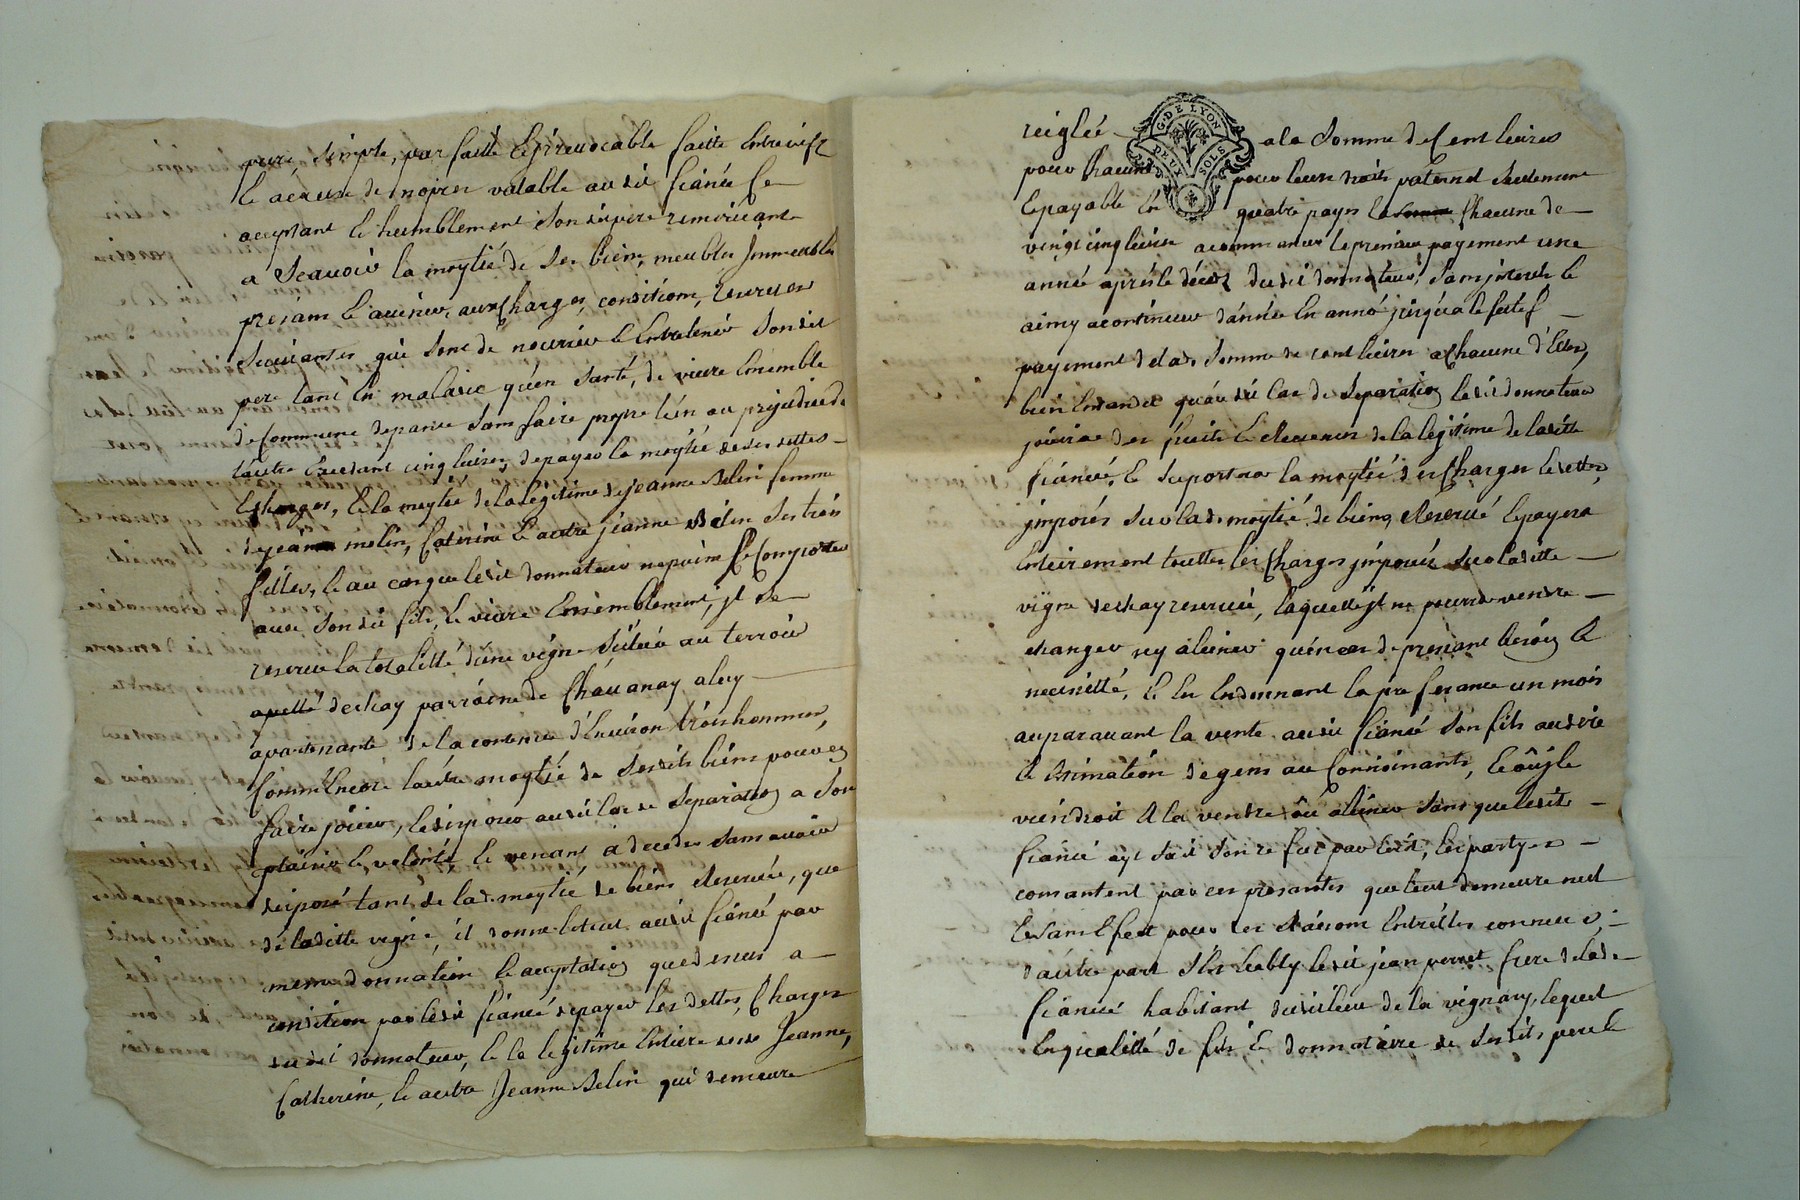 pure, simple, parfaitte & irrevocable faitte entre vifz
& a cause de nopces valable audit fiancé ce
acceptant & humblement son dit pere remerciant
a scavoir la moytié de ses biens, meubles jmmeubles
presans & avenir, aux charges, conditions, reserves
suivantes, qui sont de nourrir & entretenir sondit
pere tant en maladie qu'en santé, de vivre ensemble
de commune depance sans faire propre lun au prejudice de
lautre excedant cinq livres, de payer la moytié de ses dettes
& charges, & la moytié de la légitime de jeanne Belin femme
de jean melin, Caterine & autre jeanne Belin ses trois
filles, & au cas que ledit donnateur ne puisse se comporter
avec son dit fils, & vivre ensemblement, jl se
reserve la totalitté d'une vigne située au terroir
apellé deshay parroisse de Chavanay a luy
apartenante de la contenue d'environ trois hommes,
comm'encore lautre moytié de sesdits biens pour en
faire jouir, & disposer audit cas de separation a son
plaisir & volonté, & venant a deceder sans avoir
disposé tant de la d. moytié de biens reservée, que
de laditte vigne, il donne letout audit fiancé par
meme donnation & acceptation que dessus a
condition par ledit fiancé de payer les dettes, charges
dudit donnateur, & la legitime entiere desd. Jeanne,
Catherine, & autre Jeanne Belin qui demeure
reiglée a la somme de cent livres
pour chacune pour leurs droits paternel seulement
& payable en quatre payes la chacune de
vingt cinq livres a commancer le premier payement une
année après le décès dudit donnateur, sans jnterest &
ainsy a continuer d'année en année jusqu'a le feste f
payement de lad. somme de cent livres a chacune d'elles,
bien entandu qu'audit cas de separation ledit donnateur
jouira des fruits & revenus de la légitime de laditte
fiancée, & suportera la moytié des charges & dettes,
jmposés sur lad. moytié de biens reservé & payera
entierement touttes les charges jmposées sur laditte
vigne deshay reservée, laquelle jl ne pourra vendre
changer ny aliener qu'en cas de pressant besoin &
necessitté, & en en donnant la preferance un mois
auparavant la vente audit fiancé son fils au dire
& estimation de gens au connoissants, & ou jl
viendroit a la vendre ou aliener sans que ledit
fiancé ayt sait son refus par ecrit, les partyes
consantent par ces presantes que tout demeure nul
& sans effect pour les raisons entr'elles connues,
d'autre part s'est establý ledit jean perret frere de lad.
fiancée habitant dudit lieu de la vignary, lequel
en qualitté de fils & donnataire de sesdits pere &